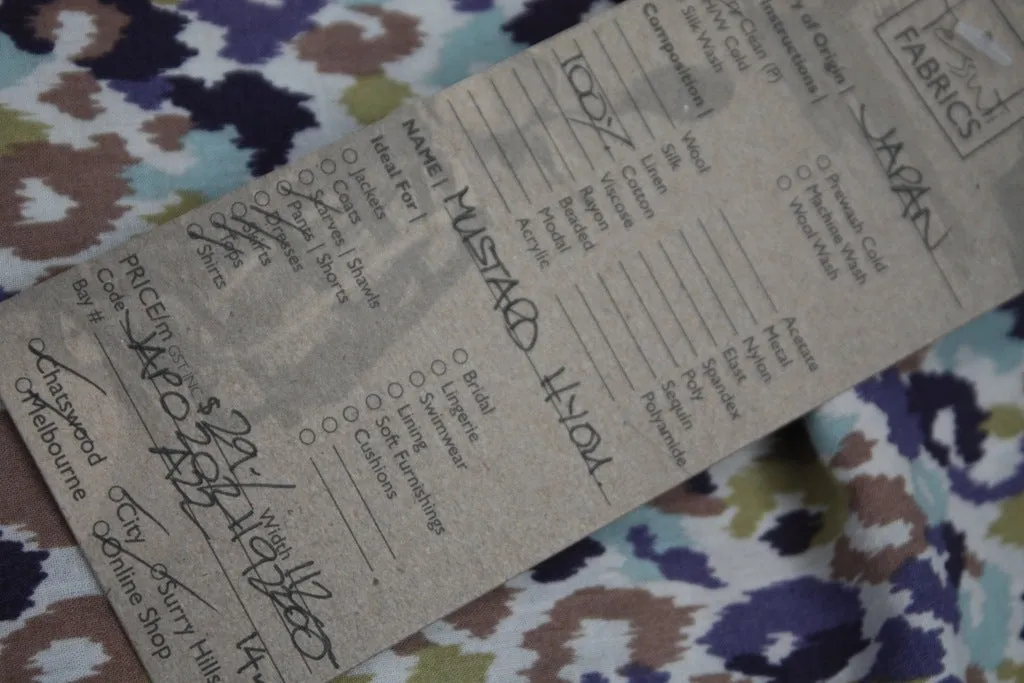 FABRICS
y of Origin | JAPAN
Instructions |
Clean (P) Prewash Cold
H/W Cold Machine Wash
Silk Wash Wool Wash
Composition |
Wool Acetate
Silk Metal
Linen Nylon
100% Cotton Elast
Viscose Spandex
Rayon Poly
Beaded Sequin
Modal Polyamide
Acrylic
NAME | MUSTARD HYOU
Ideal For |
Jackets Bridal
Coats Lingerie
Scarves | Shawls Swimwear
Pants | Shorts Lining
Dresses Soft Furnishings
Skirts Cushions
Tops
Shirts
PRICE/m GST INC. $ 29. Width 112
Code
Bay #
Chatswood City Surry Hills
Melbourne Online Shop